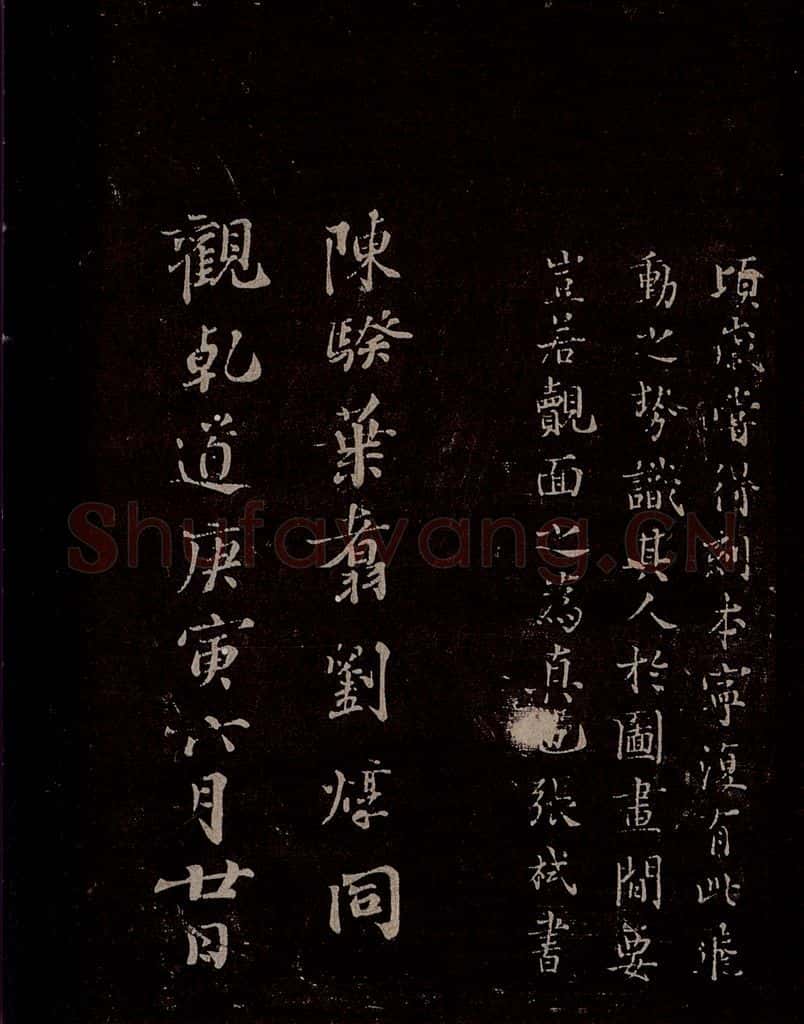 頃歲嘗得刻本寧復有此飛
動之勢識其人於圖畫間要
豈若覿面之為真也張栻書
陳騤葉翥劉焞同
觀乾道庚寅八月廿日
Shufawang.CN